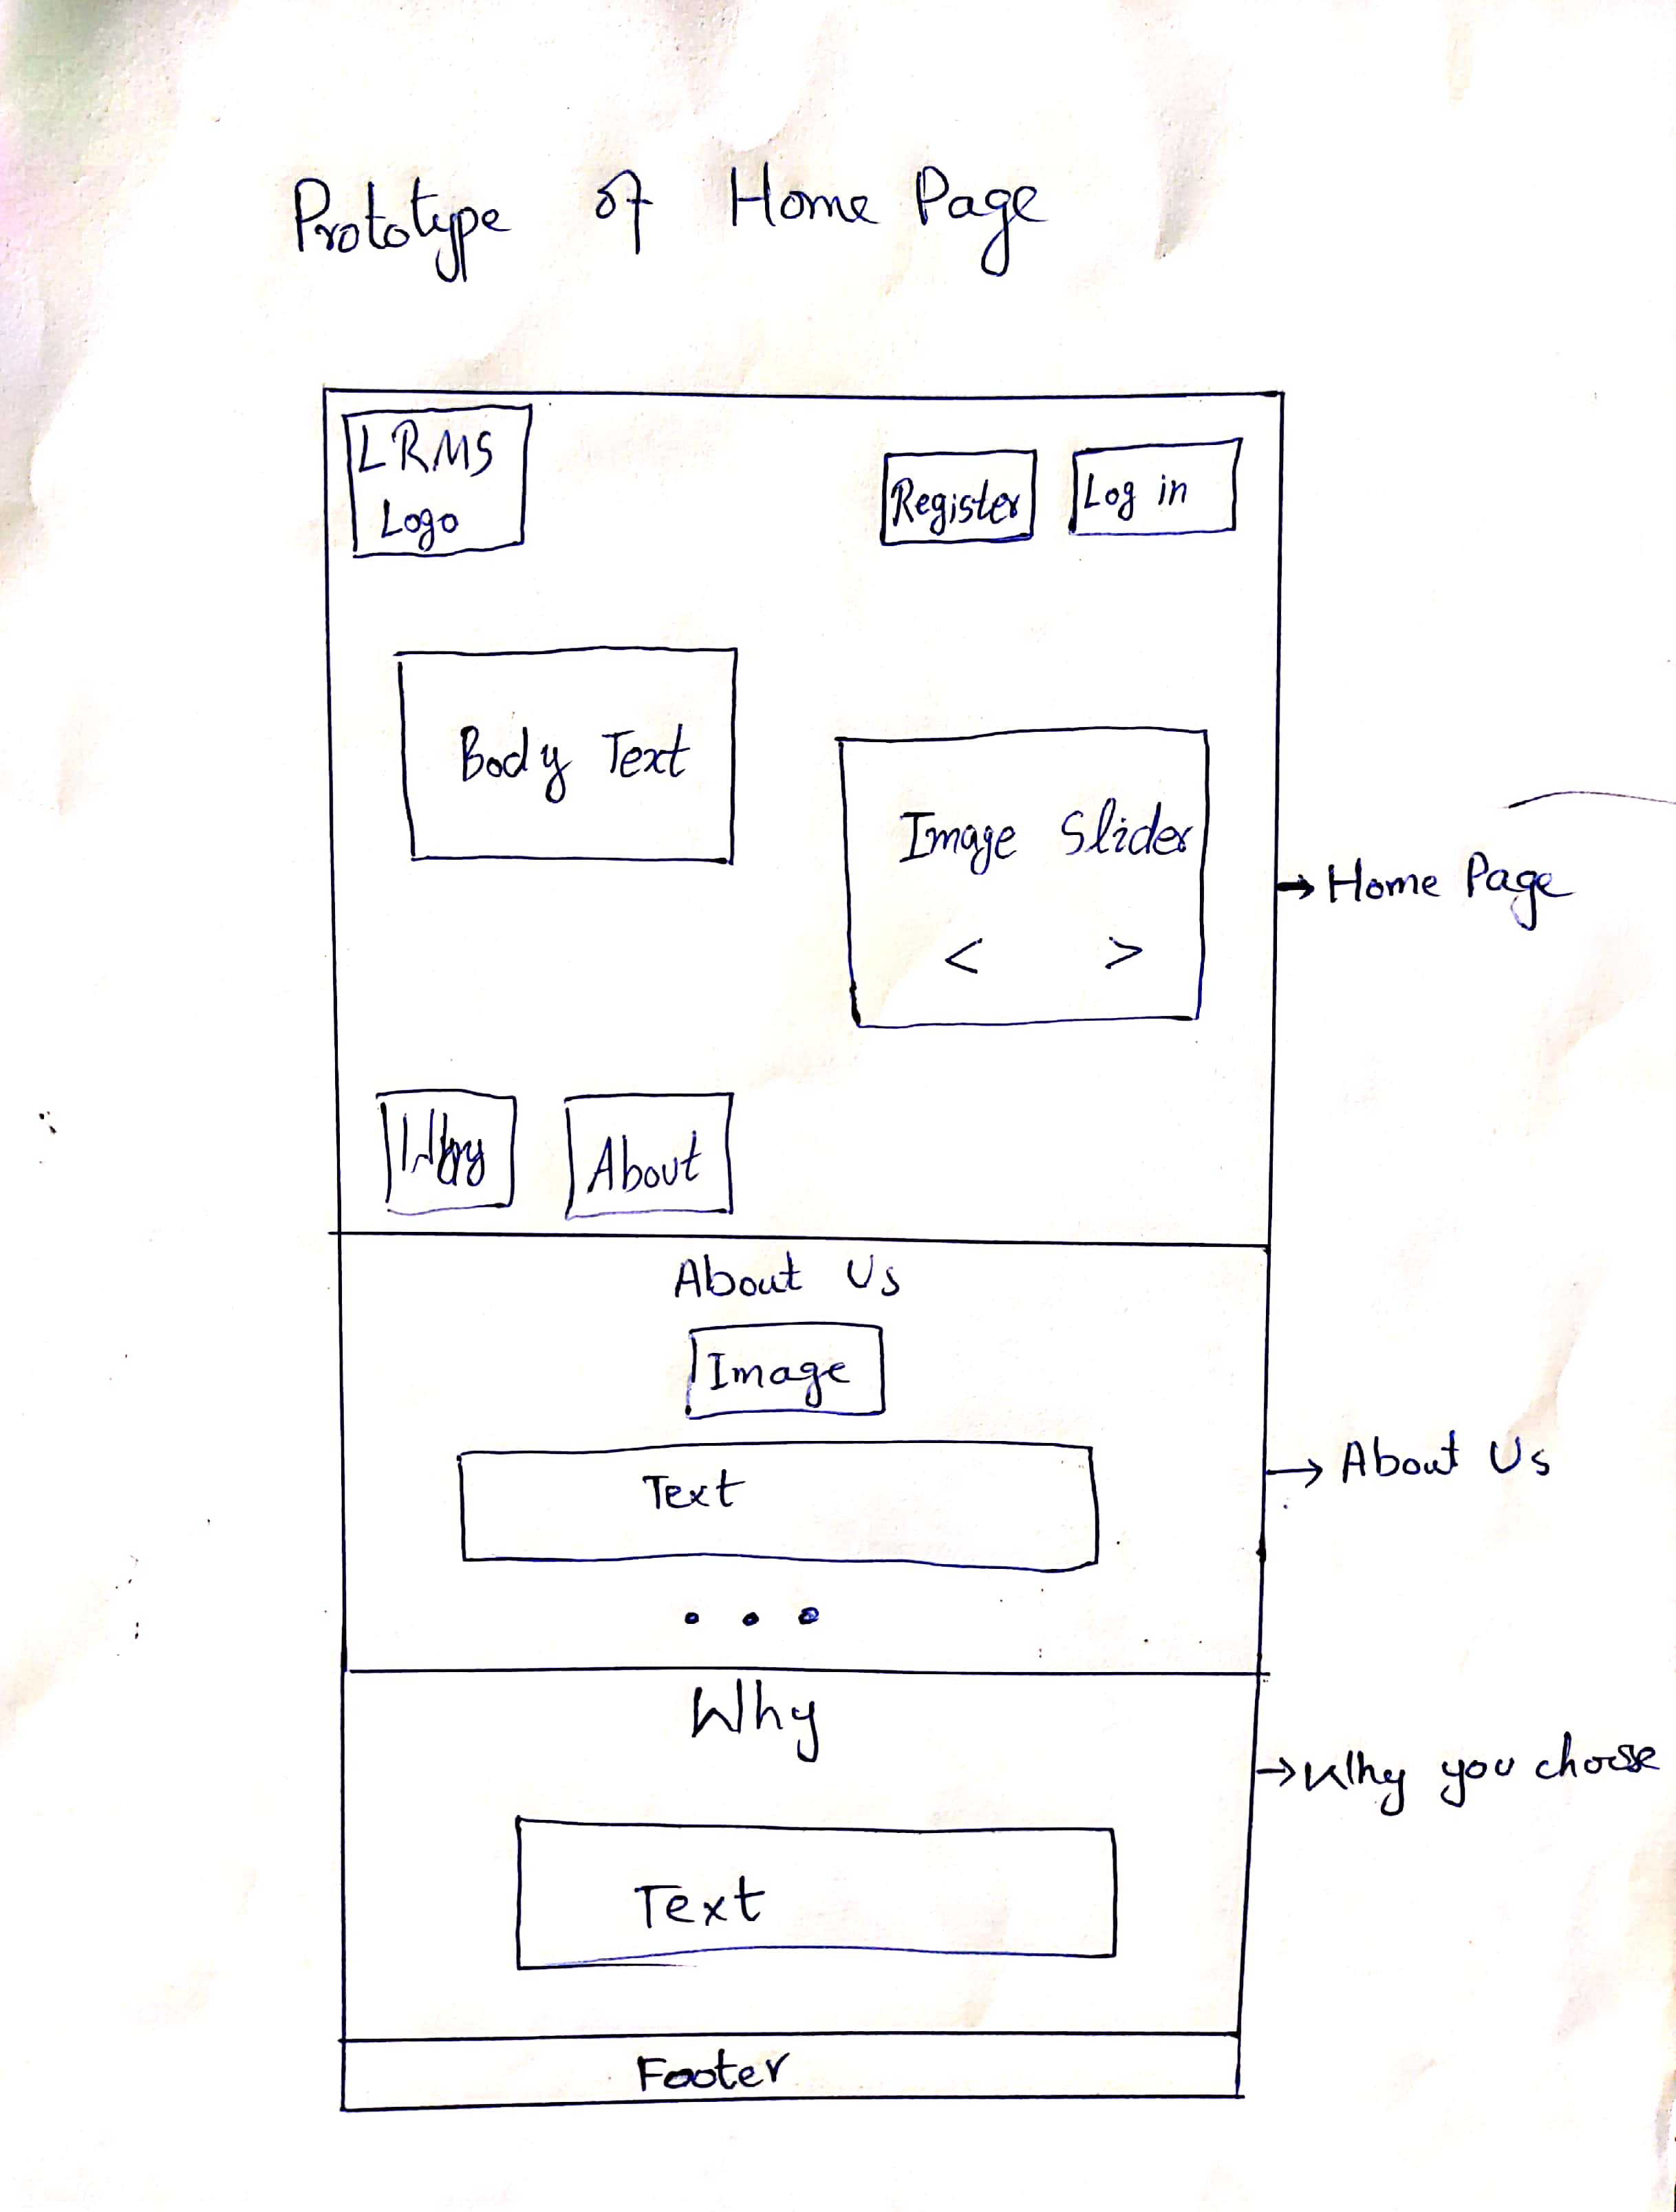 Prototype of Home Page
LRMS
Logo
Register
Log in
Body Text
Image Slider
< >
→ Home Page
Why
About
About Us
Image
Text
→ About Us
• • •
Why
→ Why you choose
Text
Footer